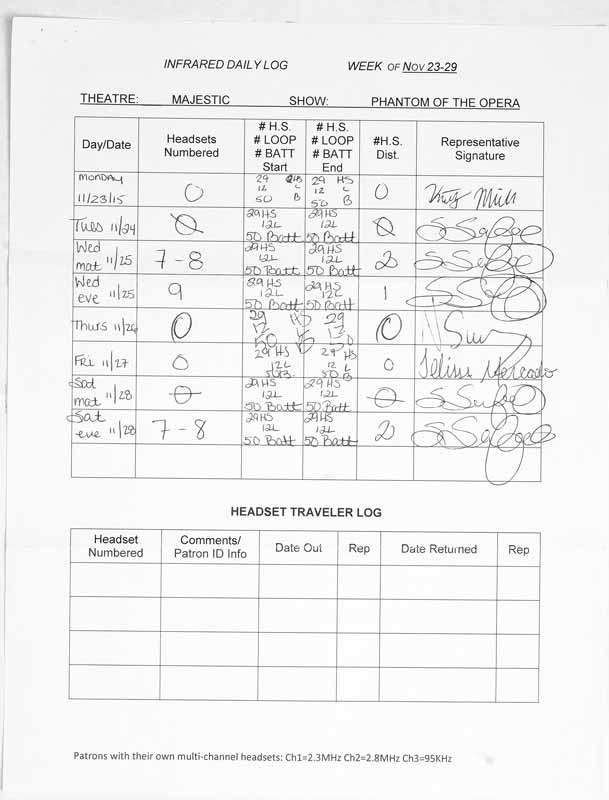 INFRARED DAILY LOG WEEK OF NOV 23-29
THEATRE: MAJESTIC SHOW: PHANTOM OF THE OPERA
Day/Date Headsets Numbered # H.S. # LOOP # BATT Start # H.S. # LOOP # BATT End #H.S. Dist. Representative Signature
MONDAY 11/23/15 0 29 HS 12 L 50 B 29 HS 12 L 50 B 0
Tues 11/24 0 29HS 12L 50 Batt 29HS 12L 50 Batt 0
Wed mat 11/25 7-8 29HS 12L 50 Batt 29HS 12L 50 Batt 2
Wed eve 11/25 9 29HS 12L 50 Batt 29HS 12L 50 Batt 1
Thurs 11/26 0 29 HS 12 L 50 29 12 50 0
FRI 11/27 0 29 HS 12L 50B 29 HS 12 L 50 B 0
Sat mat 11/28 0 29HS 12L 50 Batt 29HS 12L 50 Batt 0
Sat eve 11/28 7-8 29HS 12L 50 Batt 29HS 12L 50 Batt 2
HEADSET TRAVELER LOG
Headset Numbered Comments/ Patron ID Info Date Out Rep Date Returned Rep
Patrons with their own multi-channel headsets: Ch1=2.3MHz Ch2=2.8MHz Ch3=95KHz